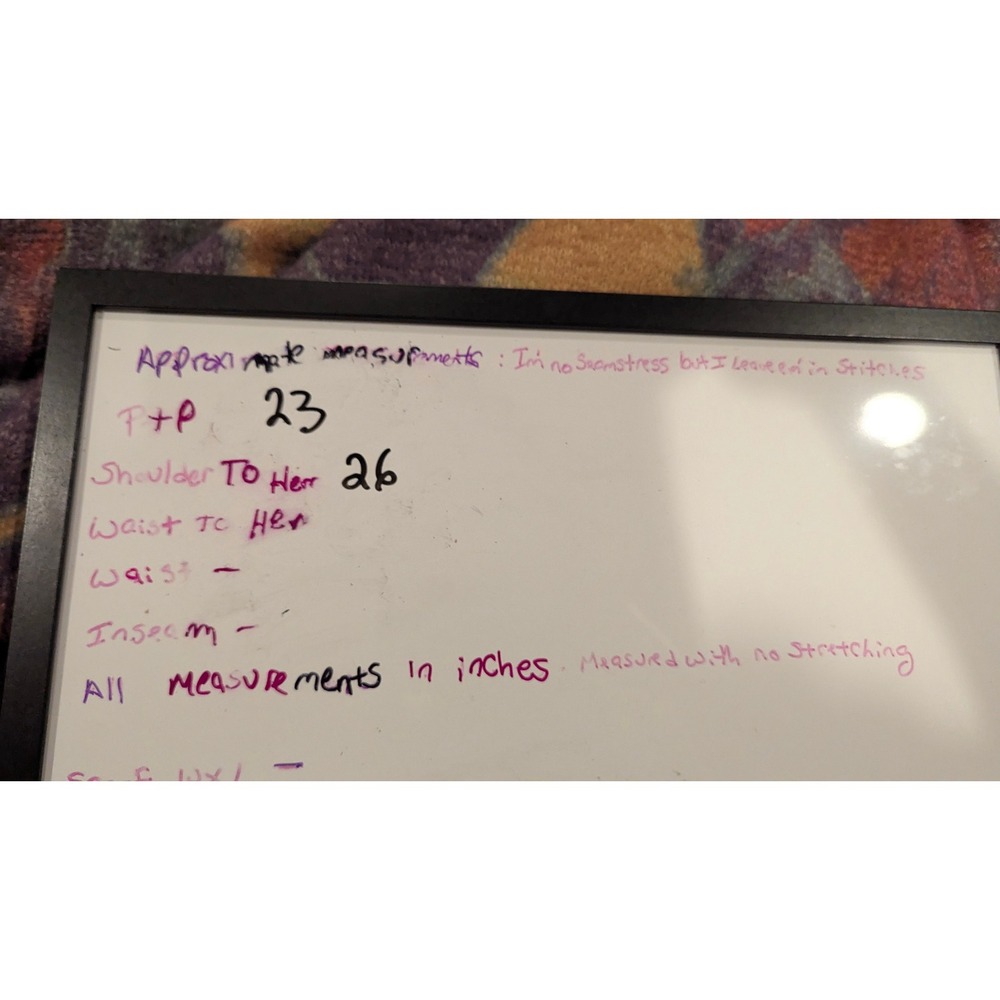 - Approximate measurements : I'm no Seamstress but I leave em in Stitches
P+P 23
Shoulder TO Hem 26
Waist TO Hem
Waist -
Inseam -
All measurements in inches. Measured with no stretching